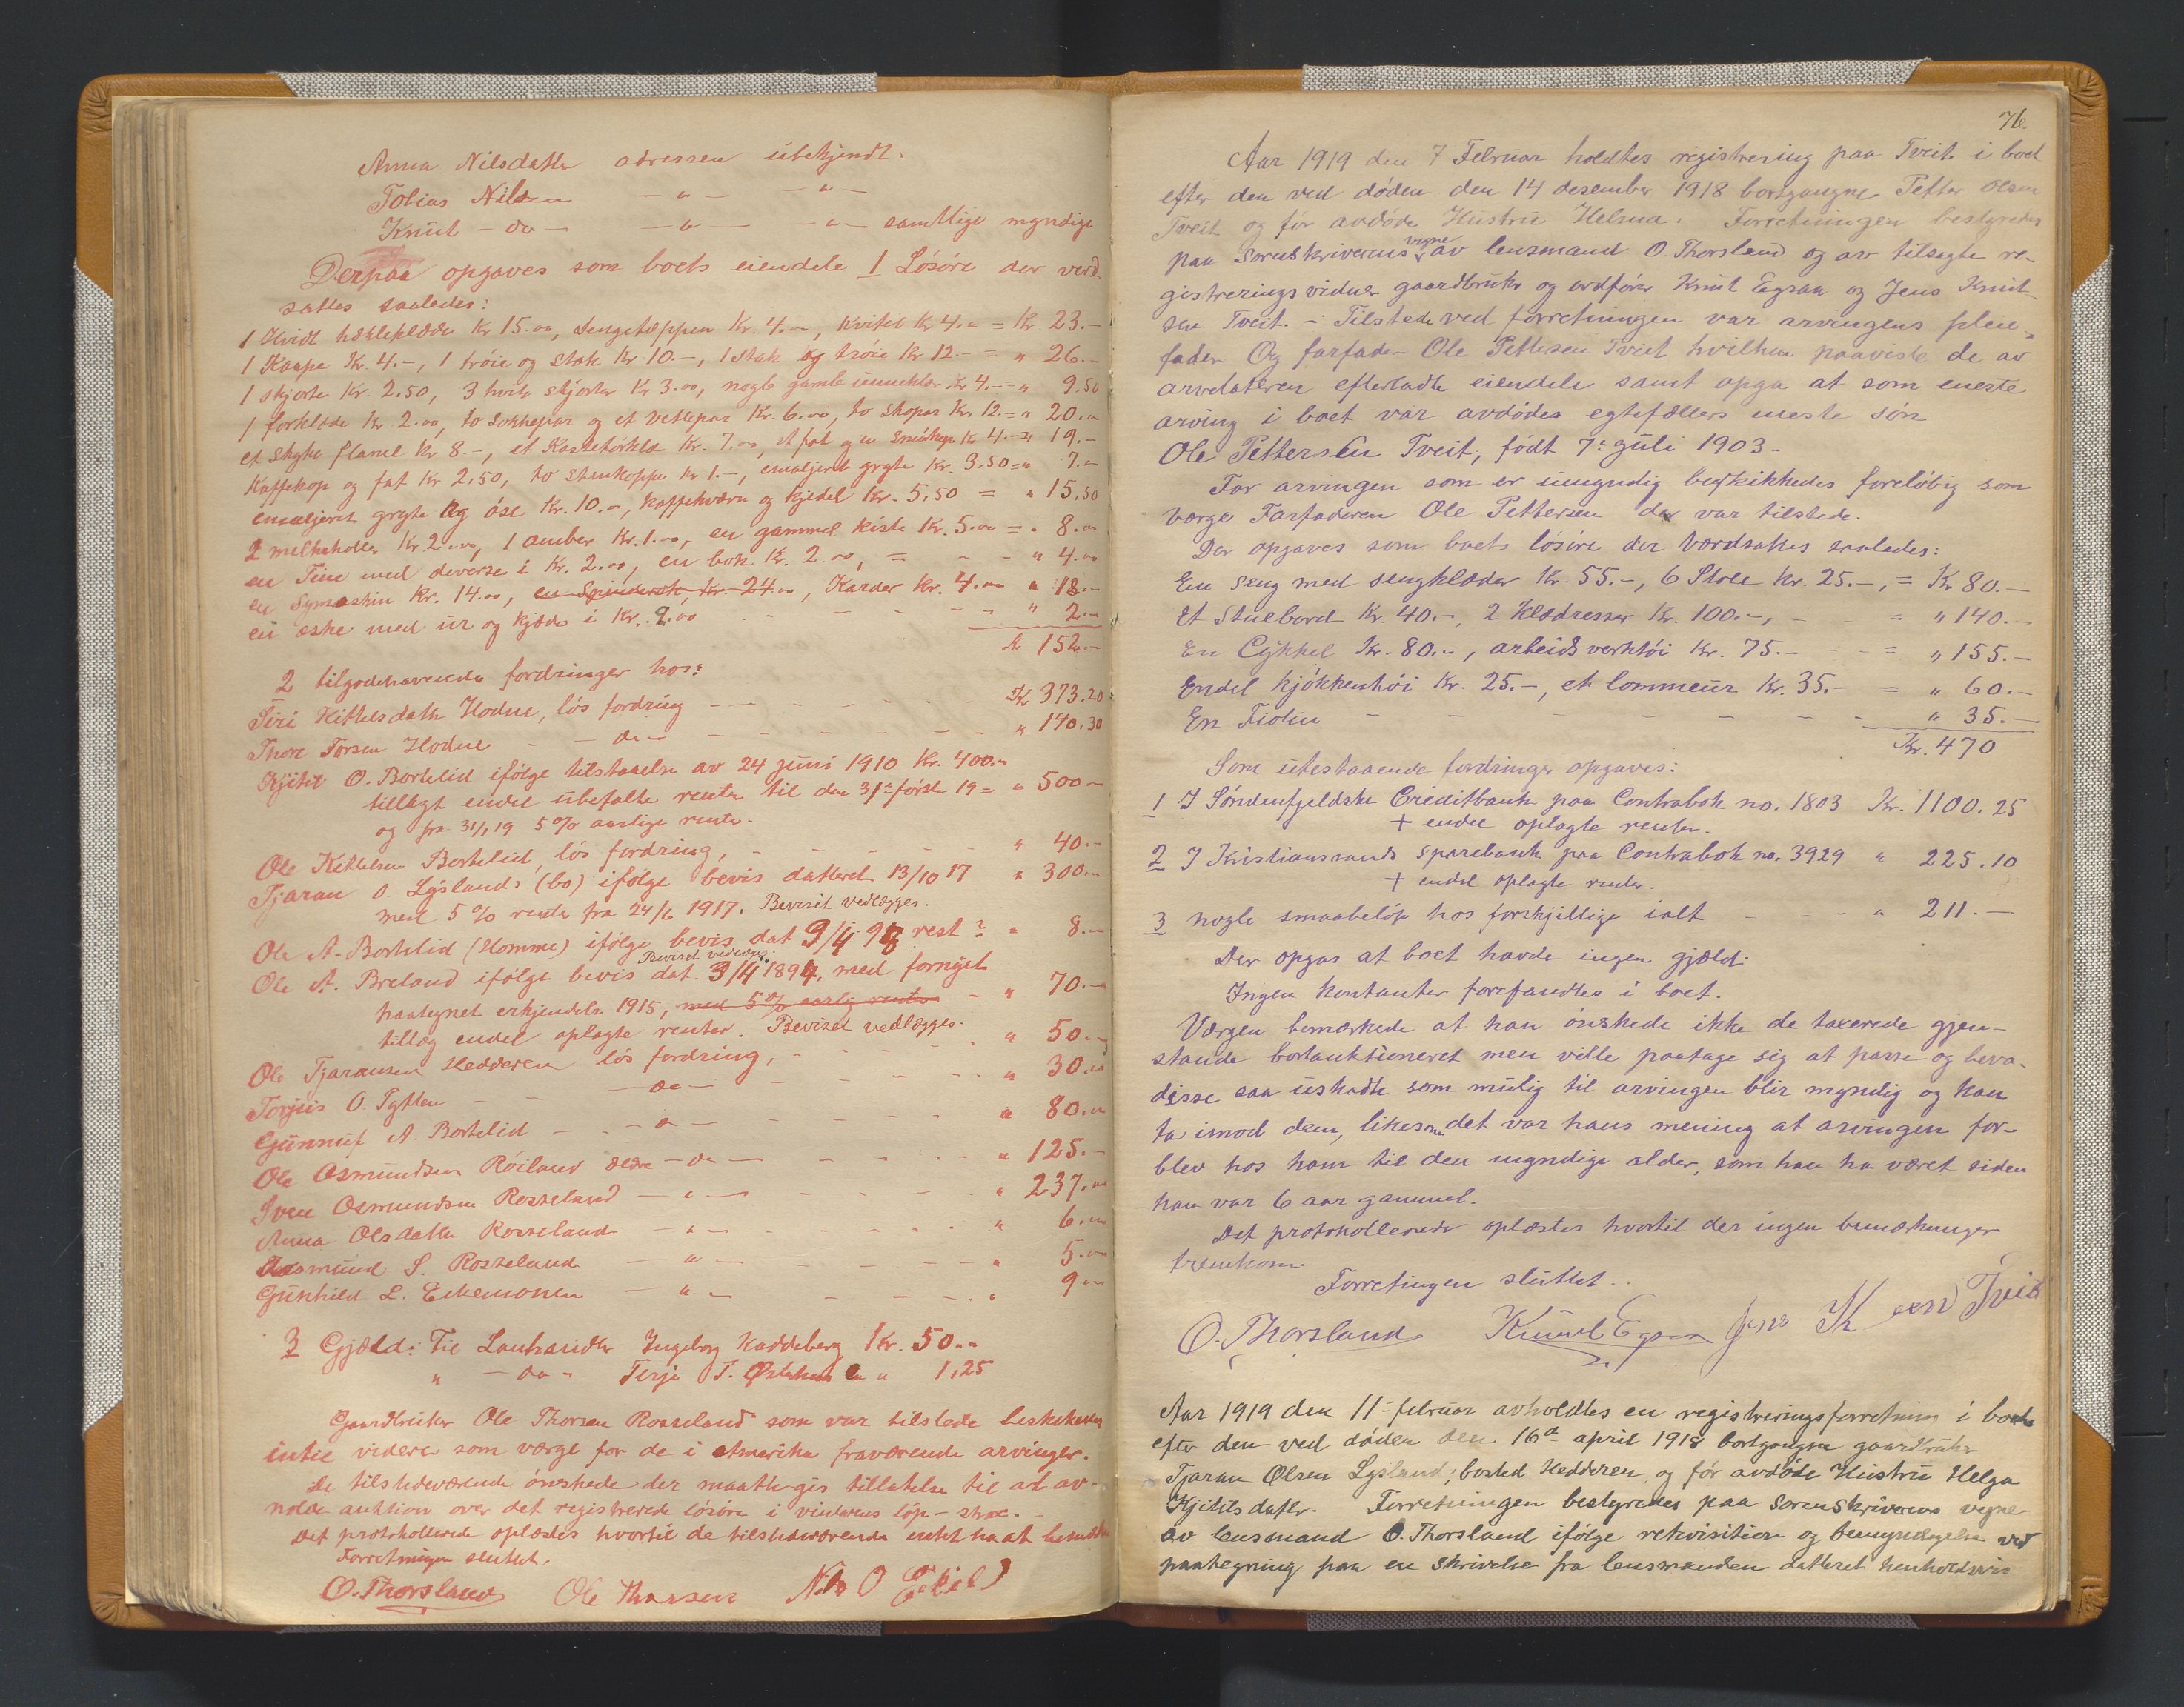 Anna Nilsdatter adressen ubekjendt.
Tobias Nilsen — " — — " —
Knut — do — — " — — " — samtlige myndige
Derpaa opgaves som boets eiendele 1 Lösöre der verd-
sattes saaledes:
1 Hvidt hækleklæde Kr 15.00, sengetæppen Kr. 4.–, Kvitel Kr 4.00 = Kr. 23.–
1 Kaape Kr. 4.–, 1 tröie og stak Kr 10.–, 1 stak og tröie Kr 12.– = " 26.–
1 skjorte Kr. 2.50, 3 hvite skjorter Kr 3.00, nogle gamle Kr 4.– = " 9.50
1 forklæde Kr 2.00, to sokkepar og et vettepar Kr. 6.00, to skopar Kr. 12.= " 20.00
et stykke flanel Kr 8.–, et Kastetörklæ Kr. 7.00, et fat og en Kr 4.– = " 19.–
Kaffekop og fat Kr 2.50, to stenkopper Kr 1.–, emaljeret gryte Kr. 3.50 = " 7.00
emaljeret gryte og öse Kr. 10.00, kaffekværn og kjedel Kr. 5.50 = " 15.50
2 melkeholler Kr. 2.00, 1 amber Kr. 1.00, en gammel kiste Kr. 5.00 = " 8.00
en Tine med diverse i Kr. 2.00, en bok Kr. 2.00, = — — " 4.00
en Symaskin Kr. 14.00, en Spinderok, Kr. 24.00, Karder Kr. 4.00 " 18.–
en æske med ur og kjæde i Kr. 2.00 — — — " 2.–
Kr 152.–
2 tilgodehavende fordringer hos:
Siri Kittelsdatter Hodne, lös fordring — — — Kr 373.20
Thore Torsen Hodne — do — — — — " 140.30
Kjitil O. Bortelid ifölge tilstaaelse av 24 juni 1910 Kr. 400.–
tillagt endel ubetalte renter til den 31te förste 19 = " 500–
og fra 31/1 19 5 % aarlige renter.
Ole Kittelsen Bortelid, lös fordring, — — — " 40.–
Tjaran O. Lyslands (bo) ifölge bevis datteret 13/10 17 " 300.–
med 5 % rente fra 24/6 1917. Beviset vedlægges.
Ole A. Bortelid (Homme) ifölge bevis dat 3/4 98 rest ? " 8.–
Beviset vedlægges.
Ole A. Breland ifölge bevis dat. 3/4 1894, med fornyet
paategnet erkjendelse 1915, med 5 % aarlig rente — " 70.–
tillæg endel oplagte renter. Beviset vedlægges.
Ole Tjaransen Hedderen lös fordring, — — " 50.–
Torjuis O. Tyften — — do — — — " 30.00
Gunnuf A. Bortelid — — " — — — " 80.00
Ole Osmundsen Röiland ældre — do — — — " 125.–
Sven Osmundsen Rosseland — " — — — " 237.00
Anna Olsdatter Rosseland — " — — — " 6.00
Aasmund S. Rosseland — " — — — " 5.00
Gunhild L. Eikemonen — " — — — " 9.00
3 Gjæld: Til Lanhandler Ingeborg Kaddeberg Kr. 50.–
" — do — Terje T. " 1,25
Gaardbruker Ole Thorsen Rosseland som var tilstede beskikkedes
intil videre som værge for de i Amerika fraværende arvinger.
De tilstedeværende önskede der maatte gis tillatelse til at av-
holde auktion over det registrerede lösöre i vinterens löp – strax.
Det protokollerede oplæstes hvortil de tilstedeværende intet ha at bemærke
Forretningen sluttet.
O. Thorsland Ole Thorsen Nils O
76
Aar 1919 den 7 Februar holdtes registrering paa Tveit i boet
efter den ved döden den 14 desember 1918 bortgangne Petter Olsen
Tveit og för avdöde Hustru Helena. Forretningen bestyredes
paa Sorenskriverens vegne av lensmand O. Thorsland og av tilsagte re-
gistreringsvidner gaardbruker og ordförer Knut Egsaa og Jens Knut-
sen Tveit. – Tilstede ved forretningen var arvingens pleie-
fader Og farfader Ole Pettersen Tveit hvilken paaviste de av
arveladeren efterladte eiendele samt opga at som eneste
arving i boet var avdödes egtefællers eneste sön
Ole Pettersen Tveit, födt 7de juli 1903.
For arvingen som er umyndig beskikkedes forelöbig som
værge Farfaderen Ole Pettersen der var tilstede.
Der opgaves som boets lösöre der værdsattes saaledes:
En seng med sengklæder Kr. 55.–, 6 Stole Kr. 25.–, = Kr 80.–
Et Stuebord Kr. 40.–, 2 Klædresser Kr. 100.–, — = " 140.–
En Cykkel Kr. 80.–, arbeidsverktöi Kr. 75.– — = " 155.–
Endel kjökkentöi Kr. 25.–, et lommeur Kr. 35.– = " 60.–
En Fiolin — — — — — — — " 35.–
Kr. 470
Som utestaaende fordringer opgaves:
1 I Söndenfjeldske Creditbank paa Contrabok no. 1803 Kr. 1100.25
+ endel oplagte renter.
2 I Kristianssands sparebank paa Contrabok no. 3929 " 225.10
+ endel oplagte renter.
3 nogle smaabelöp hos forskjillige ialt — — — " 211.–
Der opgas at boet havde ingen gjæld.
Ingen kontanter forefandtes i boet.
Værgen bemærkede at han önskede ikke de taxerede gjen-
stande bortauktioneret men ville paatage sig at passe og beva-
disse saa uskadte som mulig til arvingen blir myndig og kan
ta imod dem, likesom det var hans mening at arvingen for-
blev hos ham til den myndige alder, som han ha været siden
han var 6 aar gammel.
Det protokollerede oplæstes hvortil der ingen bemærkninger
fremkom.
Forretingen sluttet..
O. Thorsland Knut Egsaa Jens K sen Tveit
Aar 1919 den 11te februar avholdtes en registreringsforretning i boet
efter den ved döden den 16de april 1918 bortgangne gaardbruker
Tjaran Olsen Lysland, bosted Hedderen og för avdöde Hustru Helga
Kjitilsdatter. Forretningen bestyredes paa sorenskriverens vegne
av lensmand O. Thorsland ifölge rekvisition og bemyndigelse ved
paategning paa en skrivelse fra lensmanden datteret henholdsvis